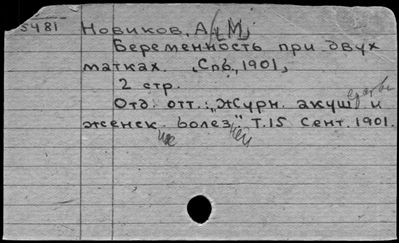 5481 Новиков, А. (М.)
Беременность при двух
матках. Спб., 1901,
2 стр.
Отд. отт.: "Журн. акуш. и
женск. болез." Т.15 Сент. 1901.